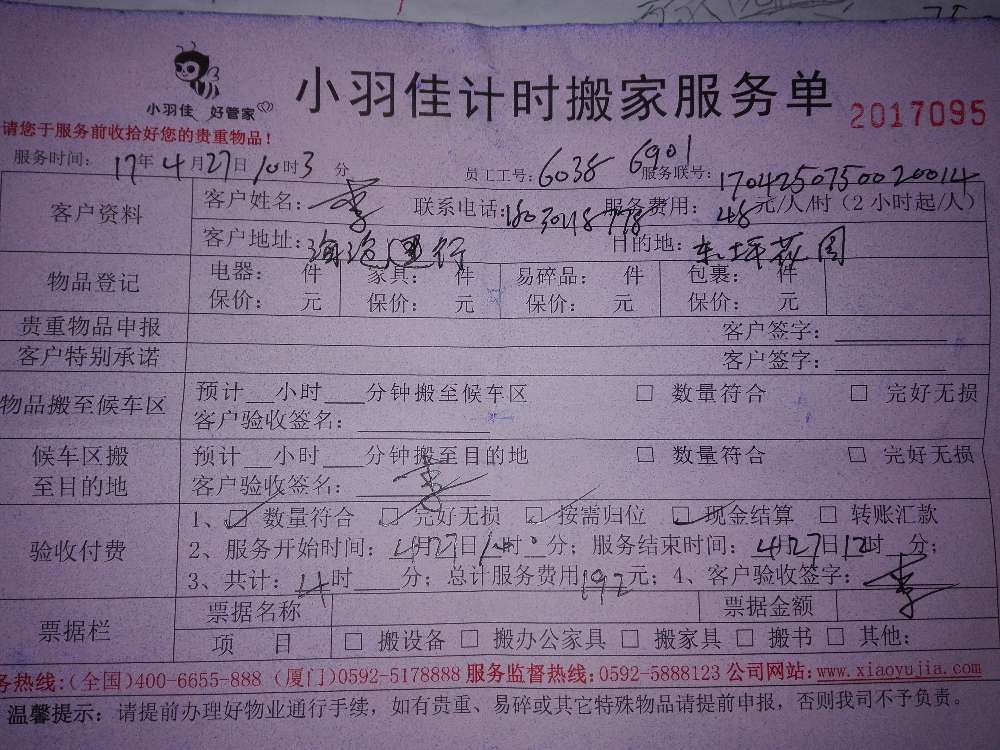 小羽佳 好管家
小羽佳计时搬家服务单
2017095
请您于服务前收拾好您的贵重物品！
服务时间： 17年4月27日10时3分 员工工号：6038 6901 服务联号：1704250750020014
客户资料
客户姓名：李 联系电话： 服务费用：48元/人/时（2小时起/人）
客户地址： 目的地：东坪花园
物品登记
电器： 件 家具： 件 易碎品： 件 包裹： 件
保价： 元 保价： 元 保价： 元 保价： 元
贵重物品申报 客户签字：
客户特别承诺 客户签字：
物品搬至候车区
预计__小时___分钟搬至候车区 □ 数量符合 □ 完好无损
客户验收签名：
候车区搬
至目的地
预计__小时___分钟搬至目的地 □ 数量符合 □ 完好无损
客户验收签名：李
验收付费
1、☑ 数量符合 ☑ 完好无损 ☑ 按需归位 ☑ 现金结算 □ 转账汇款
2、服务开始时间：4月27日10时 分；服务结束时间：4月27日12时 分；
3、共计：4时 分；总计服务费用192元；4、客户验收签字：李
票据栏
票据名称 票据金额
项 目 □ 搬设备 □ 搬办公家具 □ 搬家具 □ 搬书 □ 其他：
务热线：(全国)400-6655-888 (厦门)0592-5178888 服务监督热线：0592-5888123 公司网站：www.xiaoyujia.com
温馨提示：请提前办理好物业通行手续，如有贵重、易碎或其它特殊物品请提前申报，否则我司不予负责。